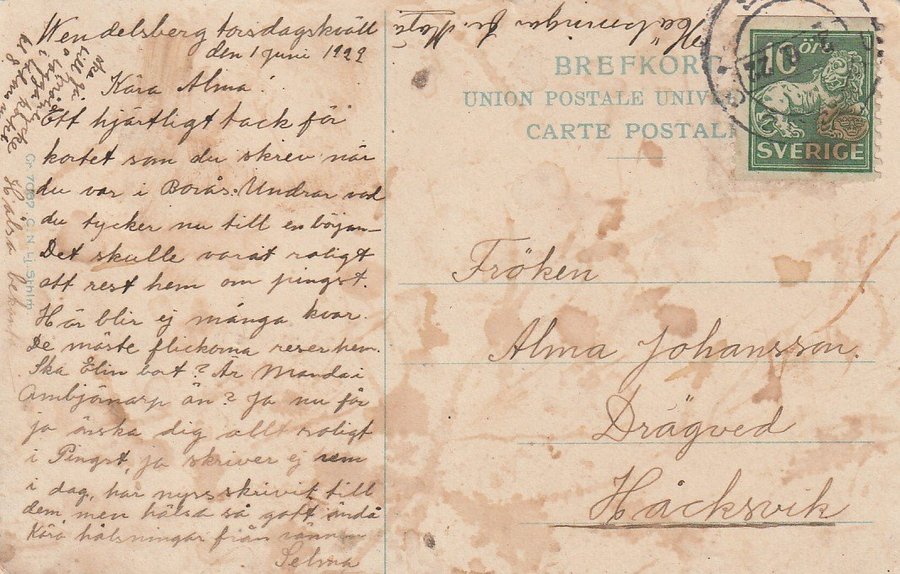 Wendelsberg torsdagskväll
den 1 juni 1922
Kära Alma!
Ett hjärtligt tack för
kortet som du skrev när
du var i Borås. Undrar vad
du tycker nu till en början
Det skulle varat roligt
att rest hem om pingst.
Här blir ej många kvar.
De måste flickorna reser hem.
Ska Elin bort? Är Manda i
Ambjörnarp än? Ja nu får
ja önska dig allt roligt
i Pingst, ja skriver ej hem
i dag, har nyss skrivit till
dem men hälsa så gott ändå
Kära hälsningar från vännen
Selma
Hälsa
Hälsningar fr. Maja
BREFKORT
UNION POSTALE UNIV
CARTE POSTALE
10 ÖRE
SVERIGE
22
Fröken
Alma Johansson.
Drägved
Håcksvik